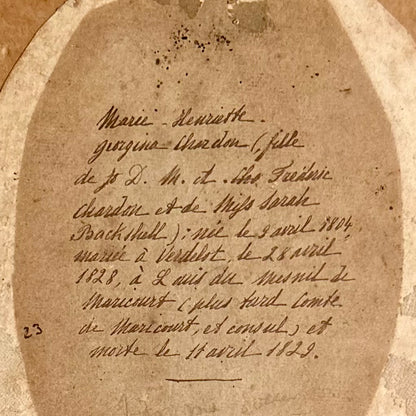 Marie-Henriette-
georgina Chardon (fille
de fo D. M. et. Cho. Fréderic
Chardon et de Miss Sarah
Backshell); née le 3 avril 1804,
mariée à Verdelot, le 28 avril
1828, à Louis du mesnil de
Maricourt (plus tard Comte
de Maricourt, et consul) et
morte le 11 avril 1829.
23